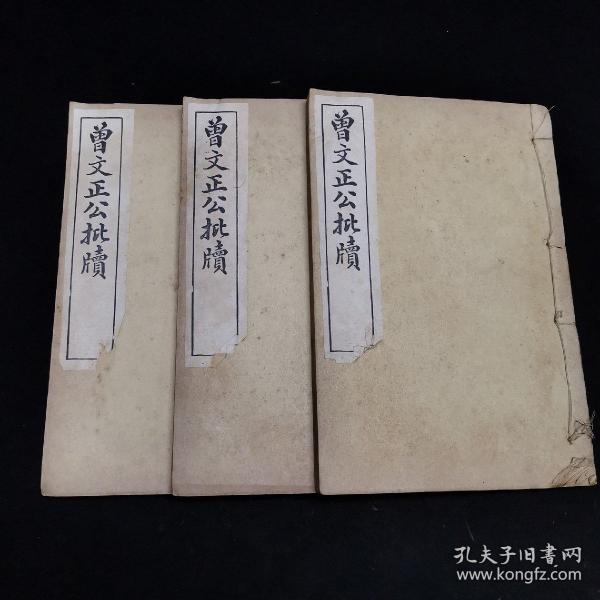 曾文正公批牘
曾文正公批牘
曾文正公批牘
孔夫子旧書网
www.kongfz.com